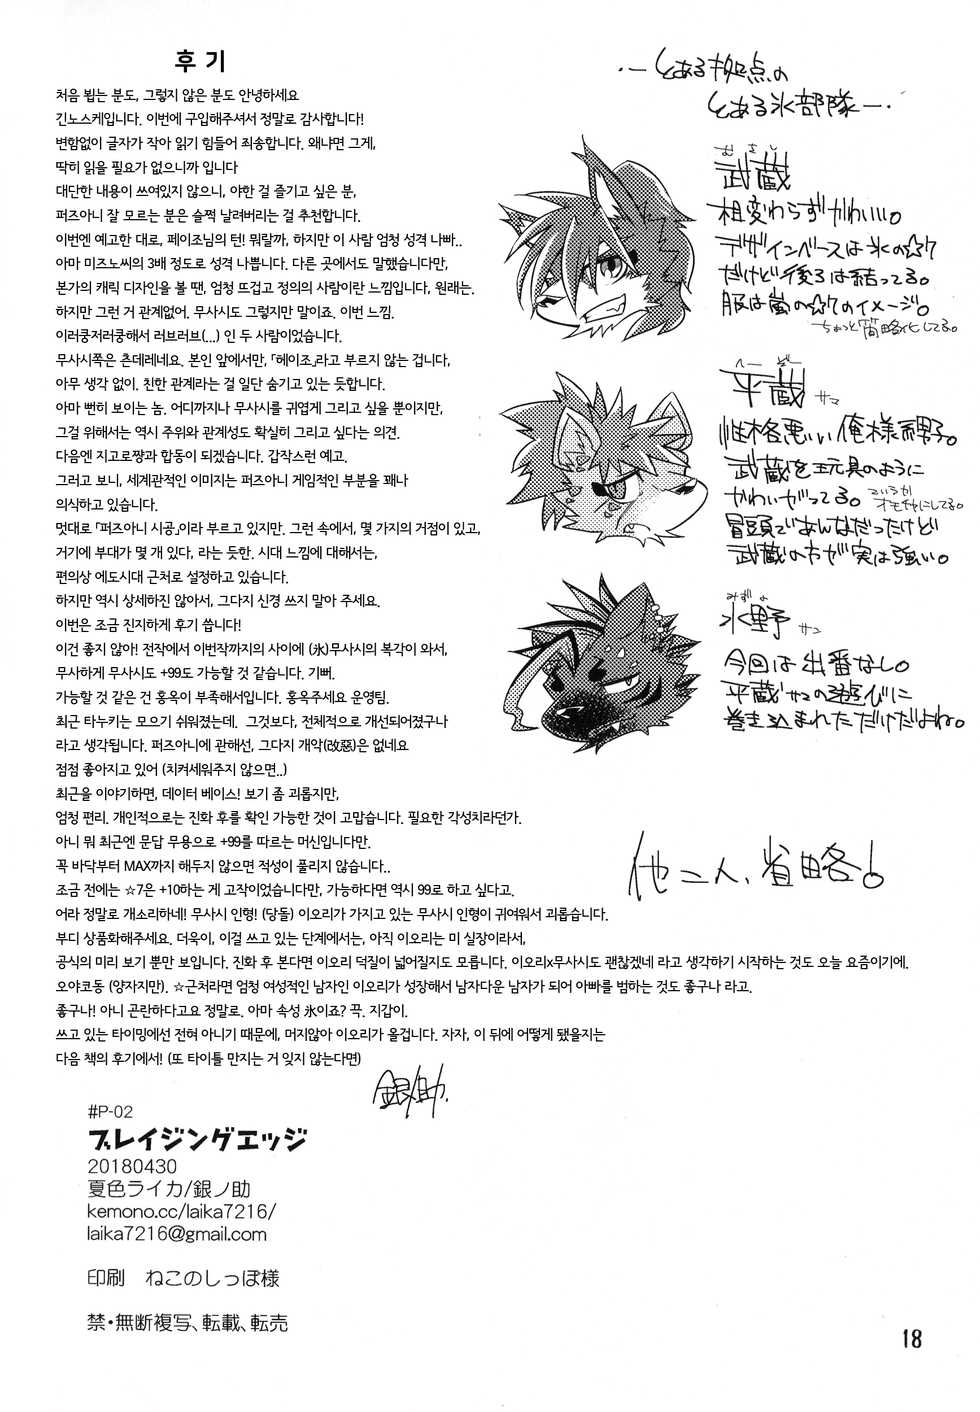 후 기
처음 뵙는 분도, 그렇지 않은 분도 안녕하세요
긴노스케입니다. 이번에 구입해주셔서 정말로 감사합니다!
변함없이 글자가 작아 읽기 힘들어 죄송합니다. 왜냐면 그게,
딱히 읽을 필요가 없으니까 입니다
대단한 내용이 쓰여있지 않으니, 야한 걸 즐기고 싶은 분,
퍼즈아니 잘 모르는 분은 슬쩍 날려버리는 걸 추천합니다.
이번엔 예고한 대로, 페이조님의 턴! 뭐랄까, 하지만 이 사람 엄청 성격 나빠..
아마 미즈노씨의 3배 정도로 성격 나쁩니다. 다른 곳에서도 말했습니다만,
본가의 캐릭 디자인을 볼 땐, 엄청 뜨겁고 정의의 사람이란 느낌입니다, 원래는.
하지만 그런 거 관계없어. 무사시도 그렇지만 말이죠. 이번 느낌.
이러쿵저러쿵해서 러브러브(...) 인 두 사람이었습니다.
무사시쪽은 츤데레네요. 본인 앞에서만, 「헤이조」라고 부르지 않는 겁니다,
아무 생각 없이. 친한 관계라는 걸 일단 숨기고 있는 듯합니다.
아마 뻔히 보이는 놈. 어디까지나 무사시를 귀엽게 그리고 싶을 뿐이지만,
그걸 위해서는 역시 주위와 관계성도 확실히 그리고 싶다는 의견.
다음엔 지고로쨩과 합동이 되겠습니다. 갑작스런 예고.
그러고 보니, 세계관적인 이미지는 퍼즈아니 게임적인 부분을 꽤나
의식하고 있습니다.
멋대로 「퍼즈아니 시공」이라 부르고 있지만. 그런 속에서, 몇 가지의 거점이 있고,
거기에 부대가 몇 개 있다, 라는 듯한. 시대 느낌에 대해서는,
편의상 에도시대 근처로 설정하고 있습니다.
하지만 역시 상세하진 않아서, 그다지 신경 쓰지 말아 주세요.
이번은 조금 진지하게 후기 씁니다!
이건 좋지 않아! 전작에서 이번작까지의 사이에 (氷)무사시의 복각이 와서,
무사하게 무사시도 +99도 가능할 것 같습니다. 기뻐.
가능할 것 같은 건 홍옥이 부족해서입니다. 홍옥주세요 운영팀.
최근 타누키는 모으기 쉬워졌는데. 그것보다, 전체적으로 개선되어졌구나
라고 생각됩니다. 퍼즈아니에 관해선, 그다지 개악(改惡)은 없네요
점점 좋아지고 있어 (치켜세워주지 않으면..)
최근을 이야기하면, 데이터 베이스! 보기 좀 괴롭지만,
엄청 편리. 개인적으로는 진화 후를 확인 가능한 것이 고맙습니다. 필요한 각성치라던가.
아니 뭐 최근엔 문답 무용으로 +99를 따르는 머신입니다만.
꼭 바닥부터 MAX까지 해두지 않으면 적성이 풀리지 않습니다..
조금 전에는 ☆7은 +10하는 게 고작이었습니다만, 가능하다면 역시 99로 하고 싶다고.
어라 정말로 개소리하네! 무사시 인형! (당돌) 이오리가 가지고 있는 무사시 인형이 귀여워서 괴롭습니다.
부디 상품화해주세요. 더욱이, 이걸 쓰고 있는 단계에서는, 아직 이오리는 미 실장이라서,
공식의 미리 보기 뿐만 보입니다. 진화 후 본다면 이오리 덕질이 넓어질지도 모릅니다. 이오리x무사시도 괜찮겠네 라고 생각하기 시작하는 것도 오늘 요즘이기에.
오야코동 (양자지만). ☆근처라면 엄청 여성적인 남자인 이오리가 성장해서 남자다운 남자가 되어 아빠를 범하는 것도 좋구나 라고.
좋구나! 아니 곤란하다고요 정말로. 아마 속성 氷이죠? 끅. 지갑이.
쓰고 있는 타이밍에선 전혀 아니기 때문에, 머지않아 이오리가 올겁니다. 자자, 이 뒤에 어떻게 됐을지는
다음 책의 후기에서! (또 타이틀 만지는 거 잊지 않는다면)
銀ノ助.
・ーとある拠点の
とある氷部隊ー・
むさし
武蔵
相変わらずかわいい。
デザインベースは氷の☆7
だけど後ろは結ってる。
服は嵐の☆7のイメージ。
ちょっと簡略化してる。
へーぞー
平蔵 サマ
性格悪い俺様男子。
武蔵を玩具のように
かわいがってる。というかオモチャにしてる。
冒頭であんなだったけど
武蔵の方が実は強い。
みずの
水野 サマ
今回は出番なし。
平蔵サマの遊びに
巻き込まれただけだよね。
他二人、省略!
#P-02
ブレイジングエッジ
20180430
夏色ライカ/銀ノ助
kemono.cc/laika7216/
laika7216@gmail.com
印刷 ねこのしっぽ様
禁・無断複写、転載、転売
18